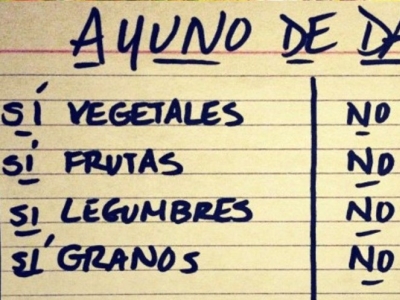 AYUNO DE DA
SÍ VEGETALES NO
SÍ FRUTAS NO
SI LEGUMBRES NO
SÍ GRANOS NO